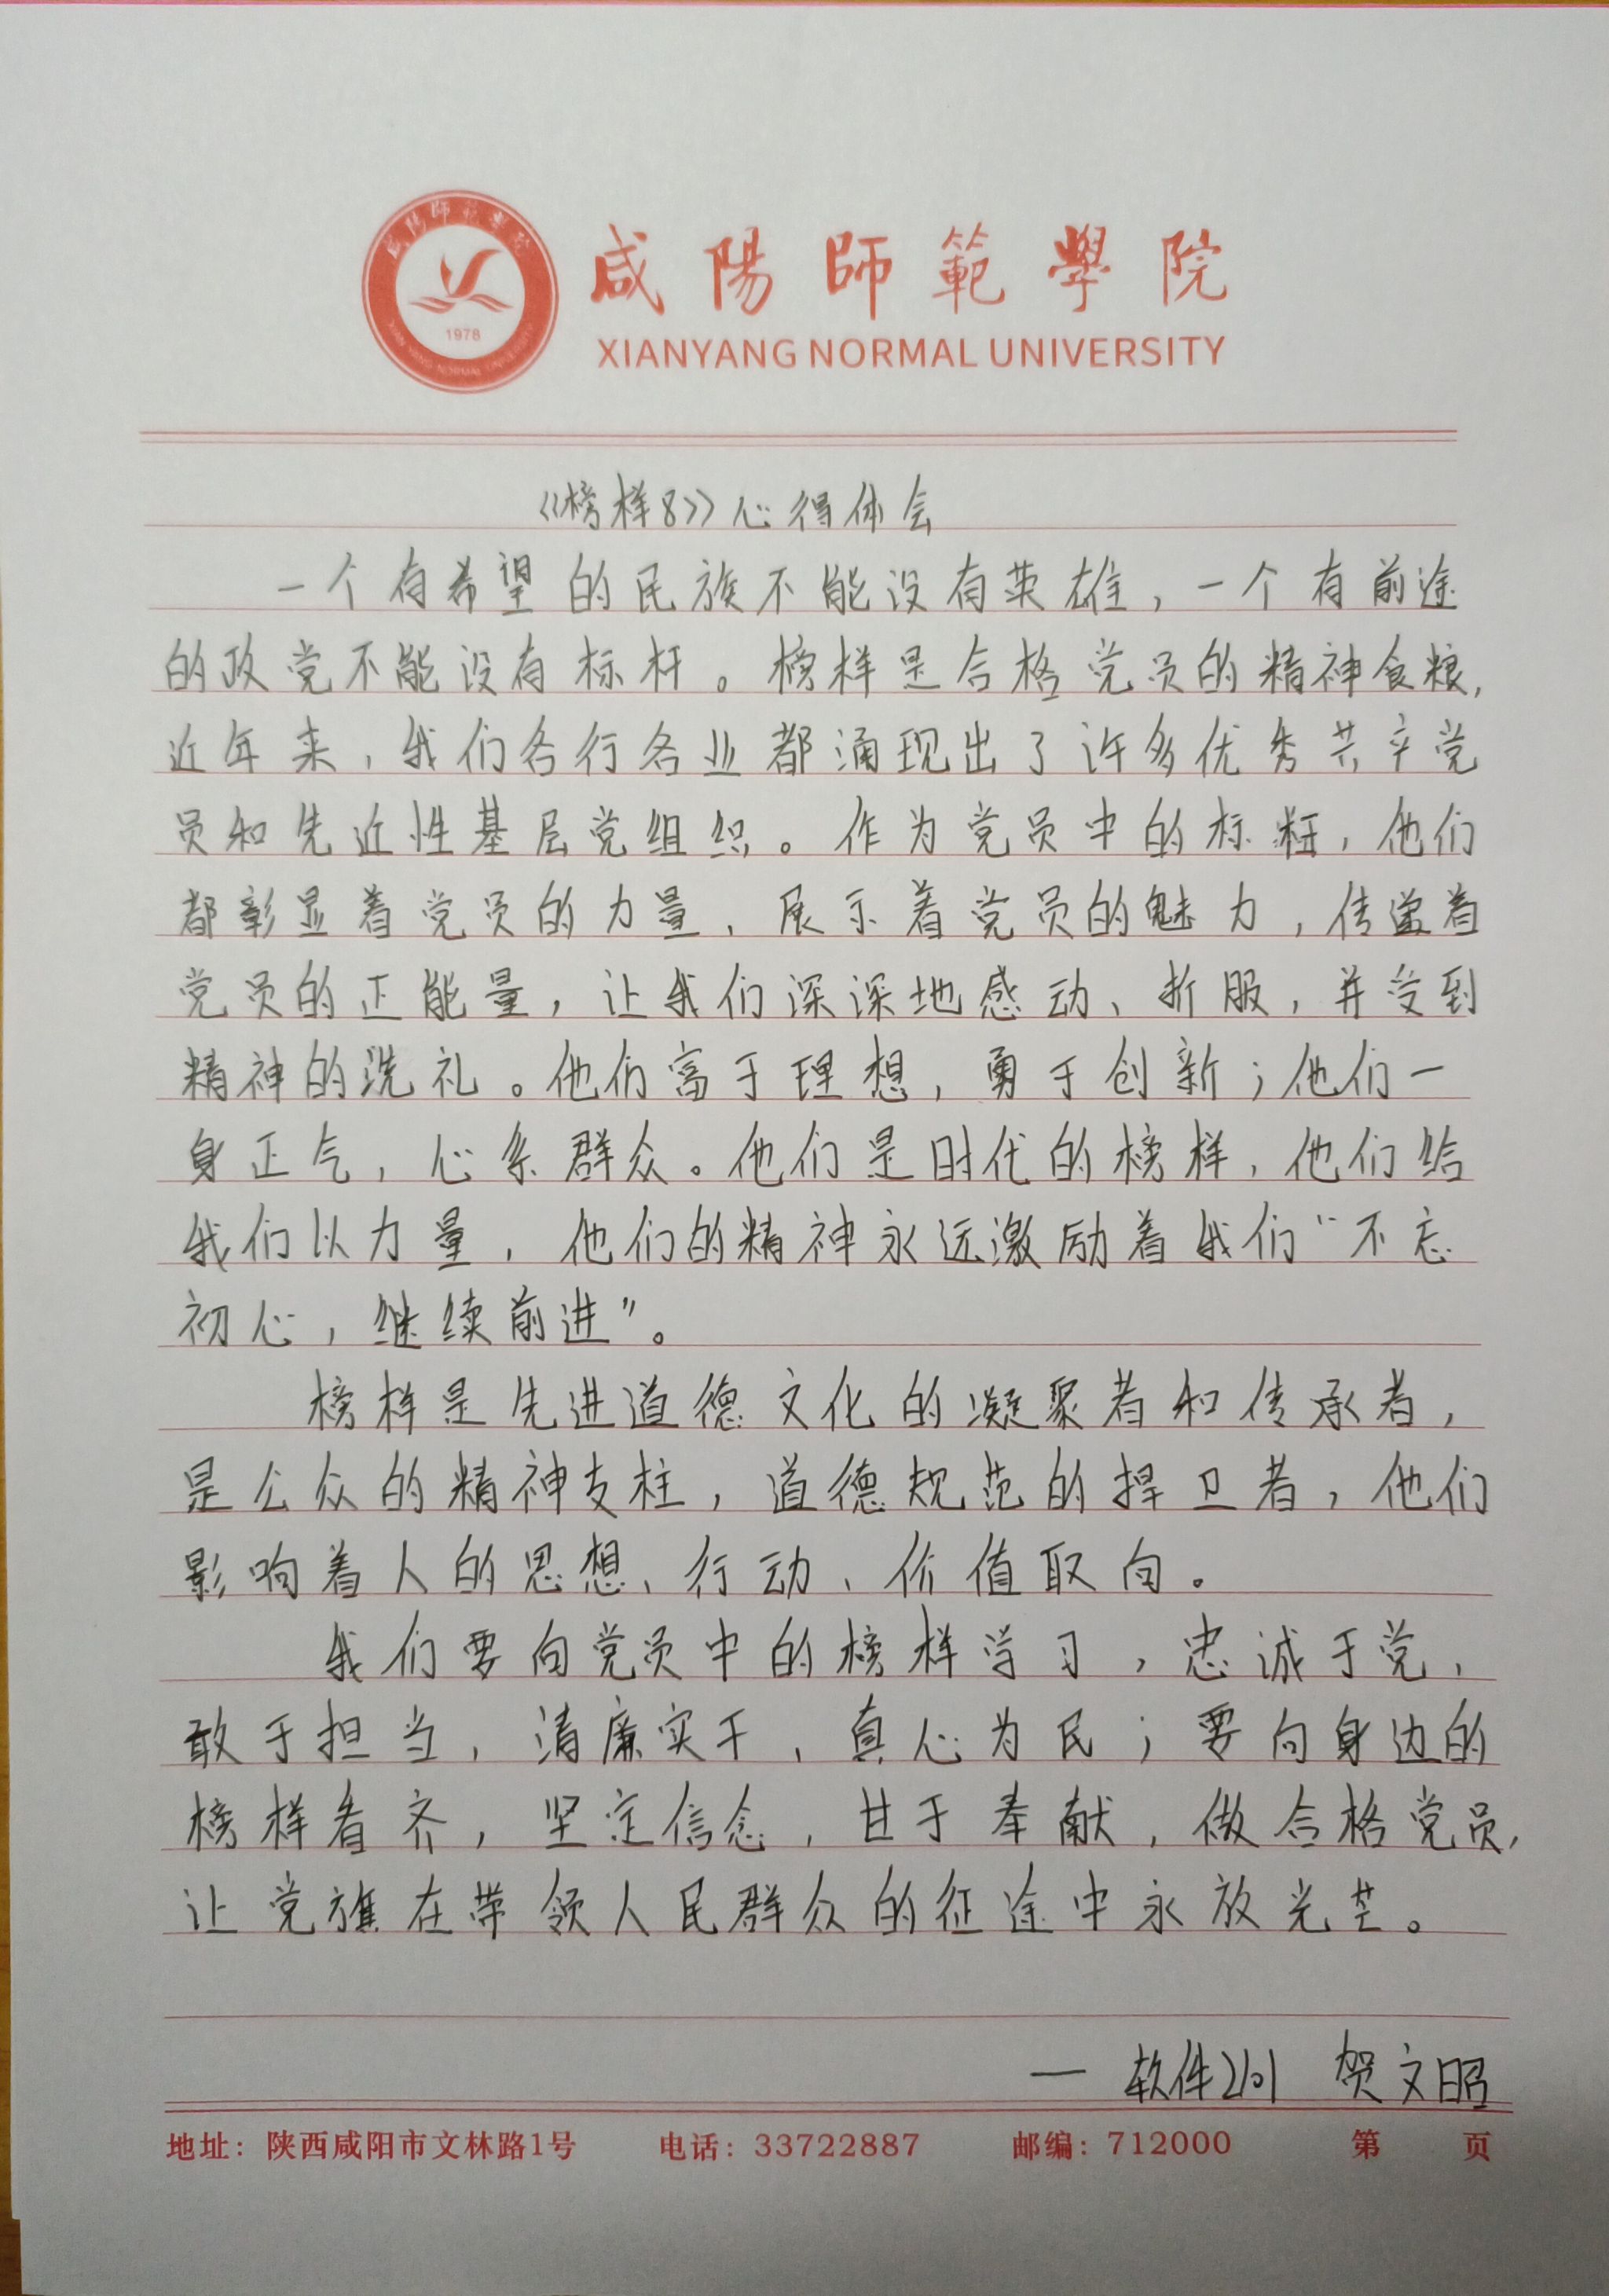 咸陽師範學院
1978
XIAN YANG NORMAL UNIVERSITY
咸陽師範學院
XIANYANG NORMAL UNIVERSITY
《榜样8》心得体会
一个有希望的民族不能没有英雄，一个有前途
的政党不能没有标杆。榜样是合格党员的精神食粮，
近年来，我们各行各业都涌现出了许多优秀共产党
员和先近性基层党组织。作为党员中的标杆，他们
都彰显着党员的力量，展示着党员的魅力，传递着
党员的正能量，让我们深深地感动、折服，并受到
精神的洗礼。他们富于理想，勇于创新；他们一
身正气，心系群众。他们是时代的榜样，他们给
我们以力量，他们的精神永远激励着我们“不忘
初心，继续前进”。
榜样是先进道德文化的凝聚者和传承者，
是公众的精神支柱，道德规范的捍卫者，他们
影响着人的思想、行动、价值取向。
我们要向党员中的榜样学习，忠诚于党，
敢于担当，清廉实干，真心为民；要向身边的
榜样看齐，坚定信念，甘于奉献，做合格党员，
让党旗在带领人民群众的征途中永放光芒。
— 软件2101 贺文昭
地址：陕西咸阳市文林路1号 电话：33722887 邮编：712000 第 页